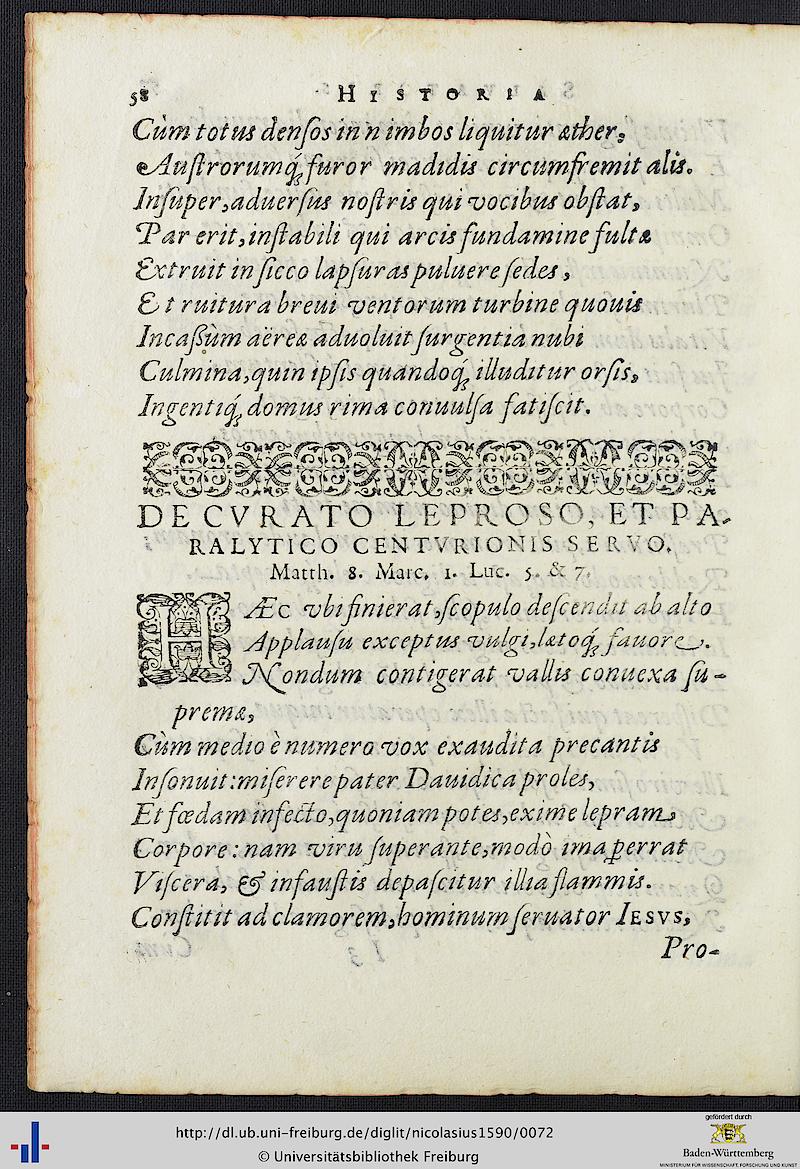 58 HISTORIA
Cùm totus denſos in nimbos liquitur æther,
Auſtrorumq́; furor madidis circumfremit alis.
Inſuper, aduerſus noſtris qui vocibus obſtat,
Par erit, inſtabili qui arcis fundamine fultæ
Extruit in ſicco lapſuras puluere ſedes,
Et ruitura breui ventorum turbine quouis
Incaßùm aëreæ aduoluit ſurgentia nubi
Culmina, quin ipſis quandoq́; illuditur orſis,
Ingentiq́; domus rima conuulſa fatiſcit.
DE CVRATO LEPROSO, ET PA-
RALYTICO CENTVRIONIS SERVO.
Matth. 8. Marc. 1. Luc. 5. & 7.
HÆC vbi finierat, ſcopulo deſcendit ab alto
Applauſu exceptus vulgi, lætoq́; fauore.
Nondum contigerat vallis conuexa ſu-
premæ,
Cùm medio è numero vox exaudita precantis
Inſonuit: miſerere pater Dauidica proles,
Et fœdam infecto, quoniam potes, exime lepram
Corpore: nam viru ſuperante, modò ima ꝑerrat
Viſcera, & infauſtis depaſcitur illia flammis.
Conſtitit ad clamorem, hominum ſeruator IESVS,
Pro-
http://dl.ub.uni-freiburg.de/diglit/nicolasius1590/0072
© Universitätsbibliothek Freiburg
gefördert durch
Baden-Württemberg
MINISTERIUM FÜR WISSENSCHAFT, FORSCHUNG UND KUNST